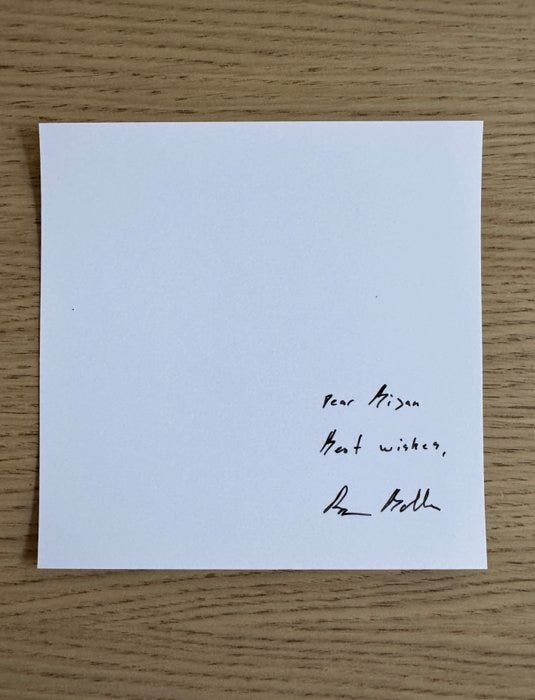 Dear Mizan
Best wishes,